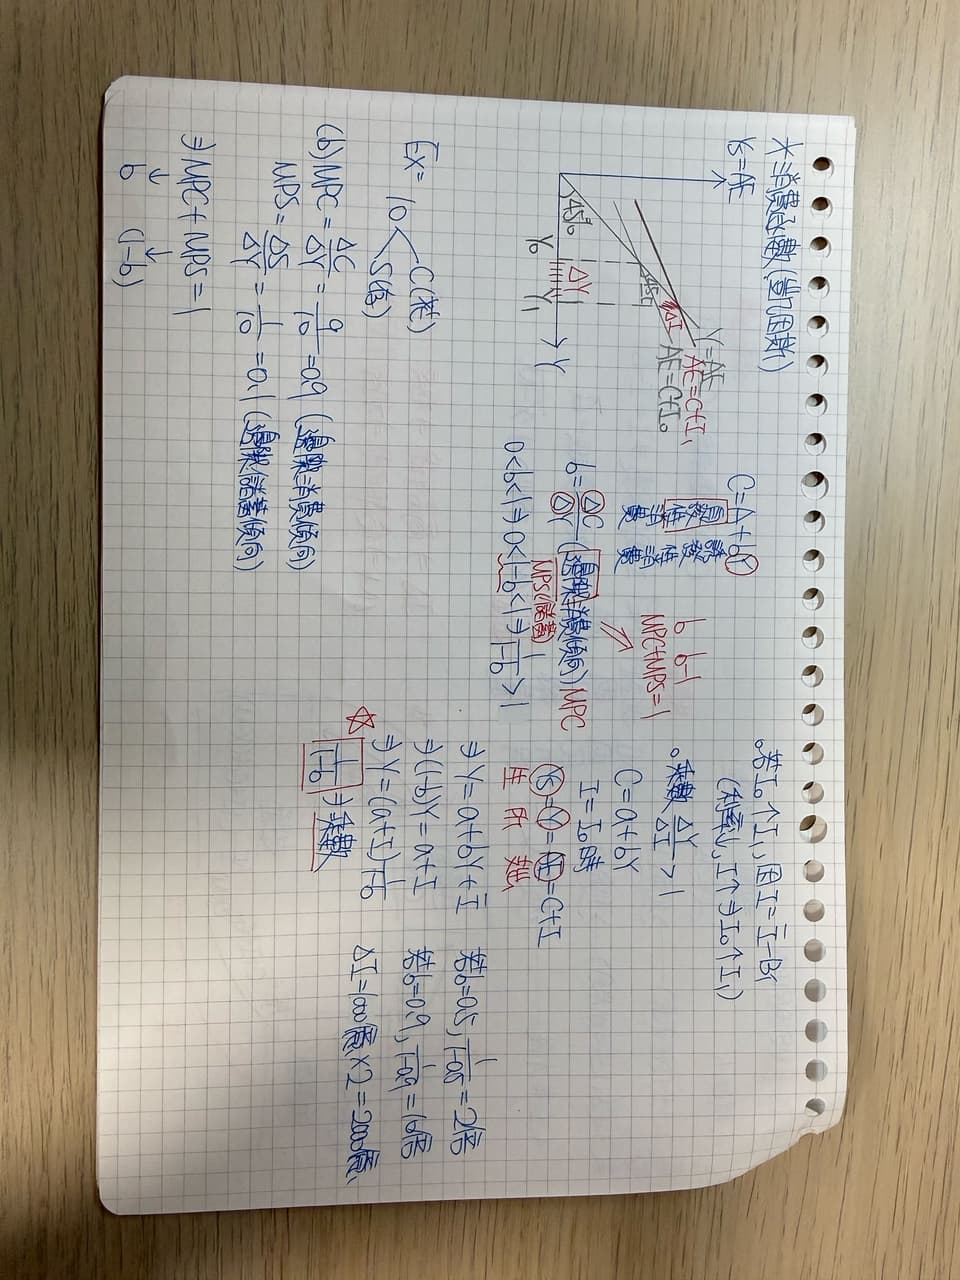 *消費函數(凱因斯)
Ys=AE
Y=AE
AE=C+I₁
AE=C+I₀
ΔI
45°
45°
ΔY
Y₀ Y₁ Y
Ex= 10 C(花)
S(存)
(b) MPC = ΔC/ΔY = 9/10 =0.9 (邊際消費傾向)
MPS = ΔS/ΔY = 1/10 =0.1 (邊際儲蓄傾向)
⇒ MPC + MPS = 1
↓ ↓
b (1-b)
C=A+bY
自發性消費 誘發性消費
b b-1
MPC+MPS=1
b= ΔC/ΔY (邊際消費傾向) MPC
MPS(儲蓄)
0<b<1 ⇒ 0<1-b<1 ⇒ 1/(1-b) >1
。若I₀↑I₁, 因I=Ī-Br
(利率↓, I↑⇒I₀↑I₁)
。乘數 ΔY/ΔI >1
C=a+bY
I=I₀時
Ys=Y=AE=C+I
生 所 支出
⇒Y=a+bY+Ī
⇒(1-b)Y=a+I
⇒Y=(a+I) 1/(1-b)
☆ 1/(1-b) ⇒乘數
若b=0.5, 1/(1-0.5) =2倍
若b=0.9, 1/(1-0.9) =10倍
ΔI=1000億×2=2000億